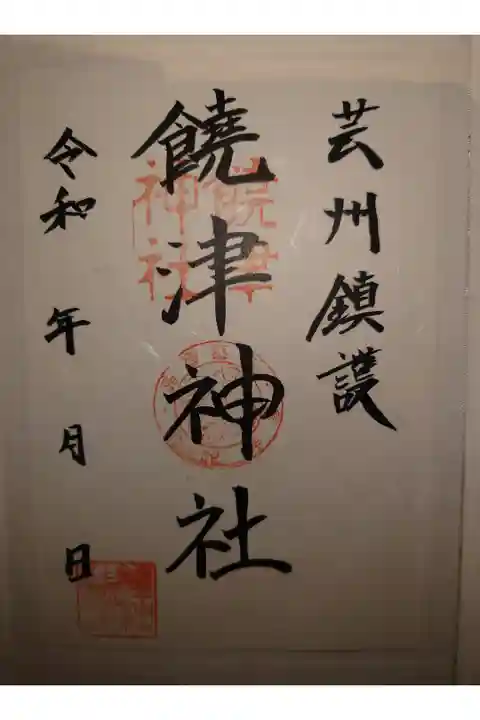 芸州鎮護
饒津神社
饒津
神社
令和 年 月 日